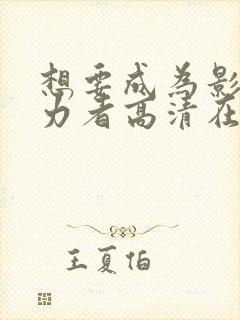 想要成为影
力者高清在
王夏伯